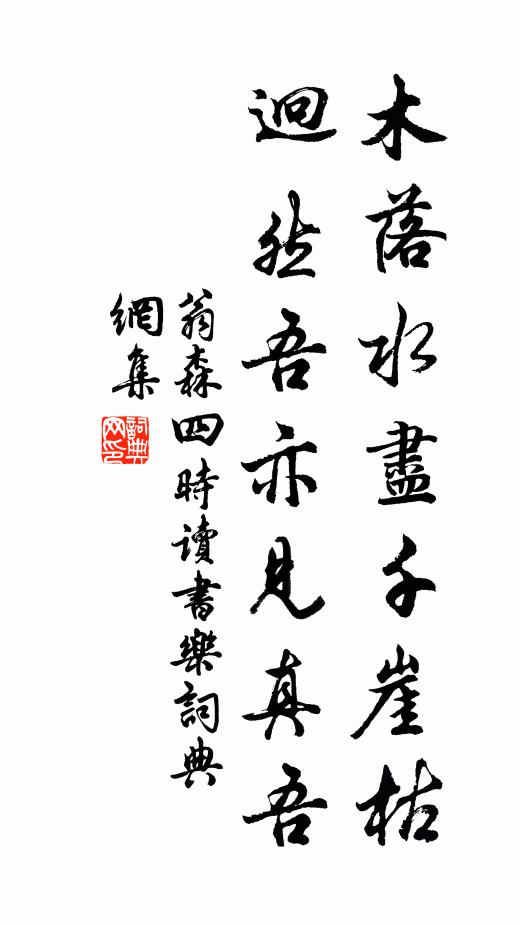 木落水盡千崖枯
迥然吾亦見真吾
翁森四時讀書樂詞典
網集
詞典
网印